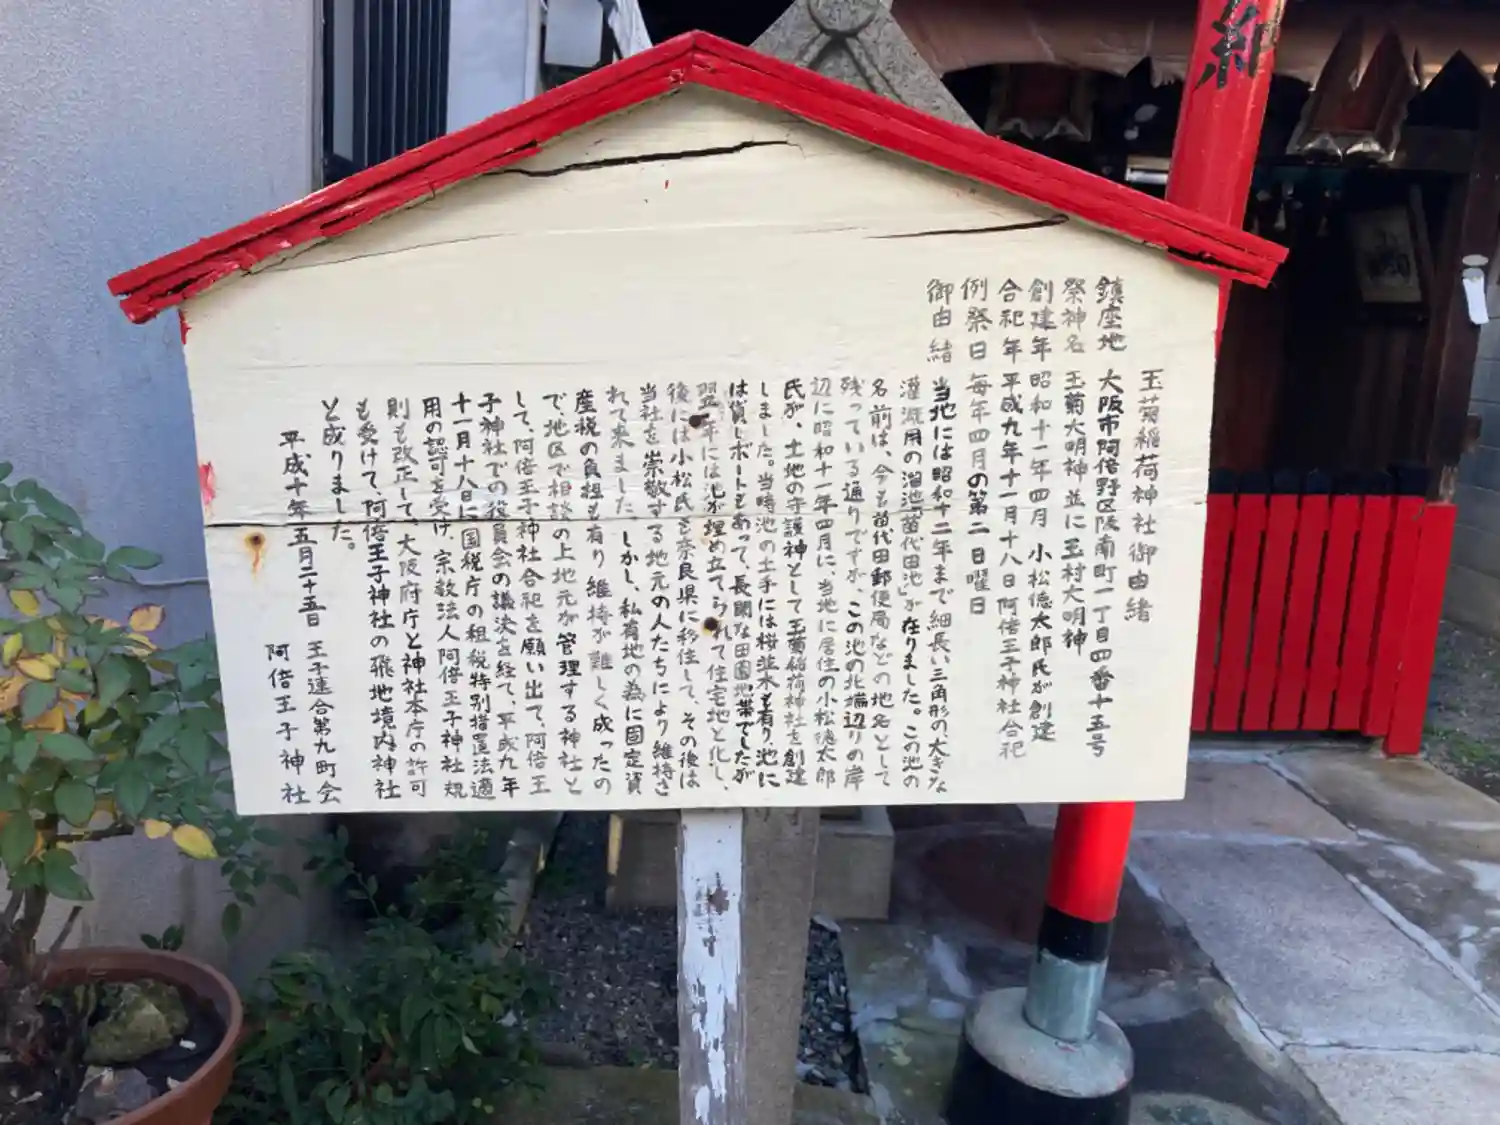 玉菊稲荷神社御由緒
鎮座地 大阪市阿倍野区陵南町一丁目四番十五号
祭神名 玉菊大明神並に玉村大明神
創建年 昭和十一年四月 小松徳太郎氏が創建
合祀年 平成九年十一月十八日阿倍王子神社合祀
例祭日 毎年四月の第二日曜日
御由緒 当地には昭和十二年まで細長い三角形の、大きな
灌漑用の溜池「苗代田池」が在りました。この池の
名前は、今も苗代田郵便局などの地名として
残っている通りですが、この池の北端辺りの岸
辺に昭和十一年四月に、当地に居住の小松徳太郎
氏が、土地の守護神として玉菊稲荷神社を創建
しました。当時池の土手には桜並木も有り池に
は貸しボートもあって、長閑な田園地帯でしたが
翌年には池が埋め立てられて住宅地と化し、
後には小松氏も奈良県に移住して、その後は
当社を崇敬する地元の人たちにより維持さ
れて来ました。しかし、私有地の為に固定資
産税の負担も有り維持が難しく成ったの
で、地区で相談の上地元が管理する神社と
して、阿倍王子神社合祀を願い出て、阿倍王
子神社での役員会の議決を経て、平成九年
十一月十八日に国税庁の租税特別措置法適
用の認可を受け、宗教法人阿倍王子神社規
則も改正して、大阪府庁と神社本庁の許可
も受けて、阿倍王子神社の飛地境内神社
と成りました。
平成十年五月二十五日 王子連合第九町会
阿倍王子神社